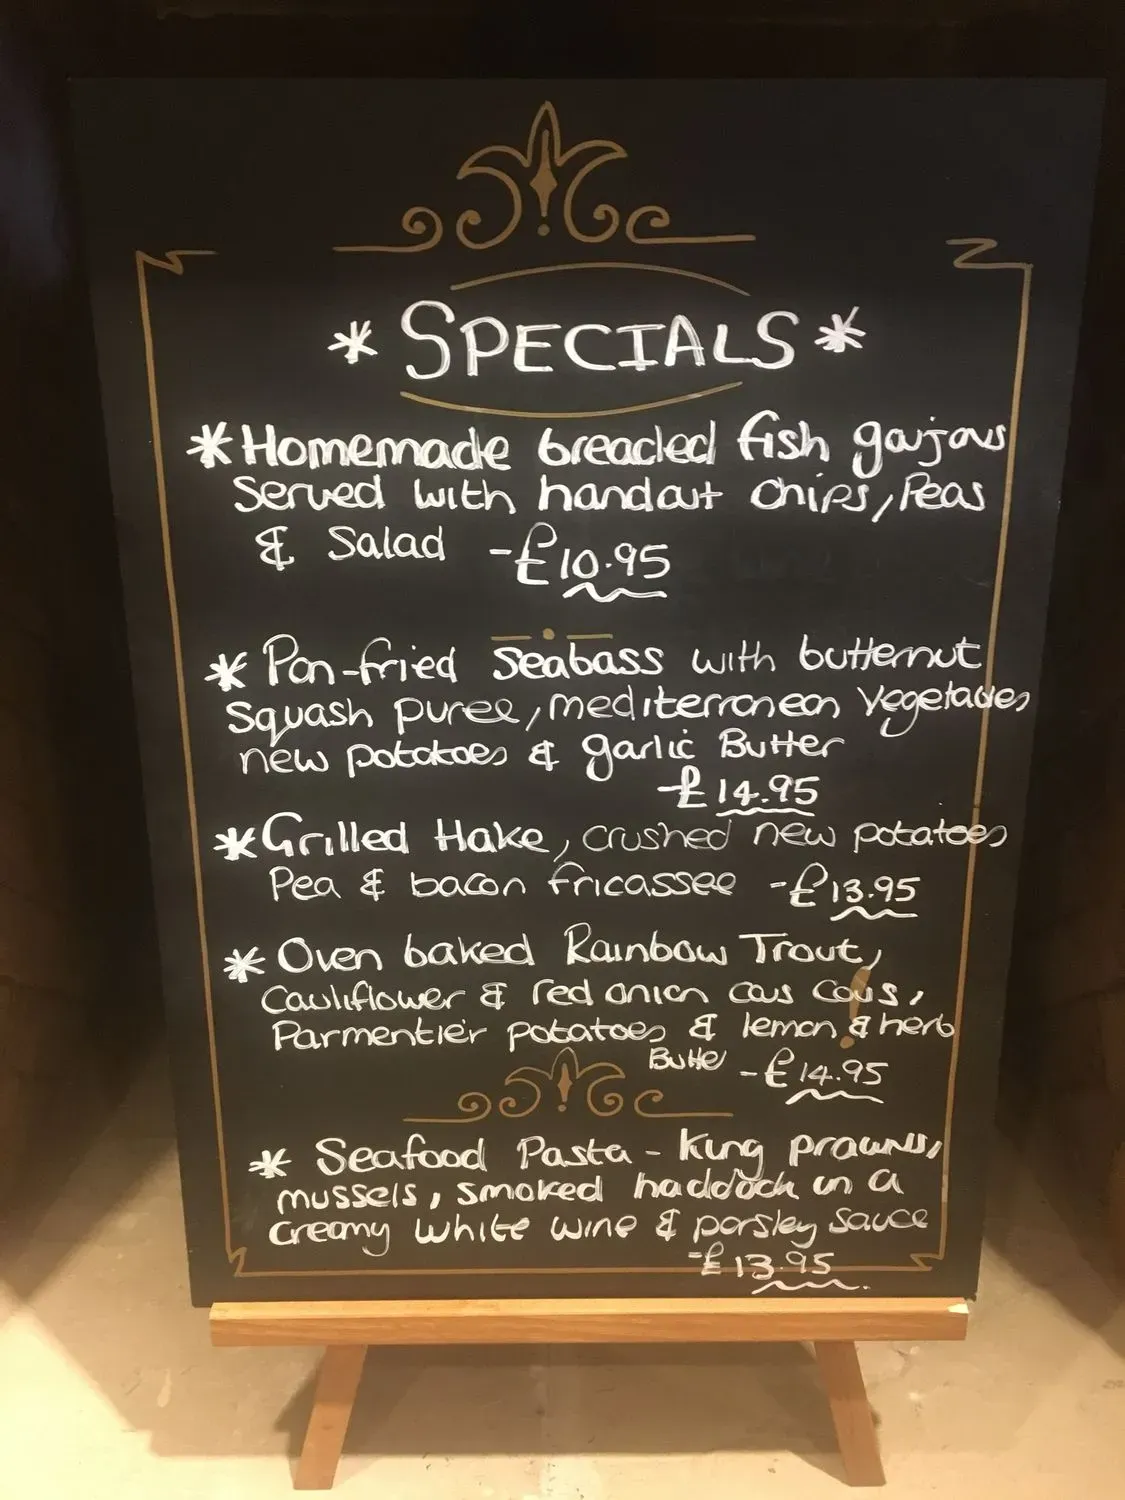 * SPECIALS *
* Homemade breaded fish goujons
Served with handcut chips, Peas
& Salad - £10.95
* Pan-fried seabass with butternut
Squash puree, mediterranean vegetables
new potatoes & garlic Butter
- £14.95
* Grilled Hake, crushed new potatoes
Pea & bacon fricassee - £13.95
* Oven baked Rainbow Trout,
Cauliflower & red onion cous cous,
Parmentier potatoes & lemon & herb
Butter - £14.95
* Seafood Pasta - King prawns,
mussels, smoked haddock in a
creamy white wine & parsley sauce
- £13.95